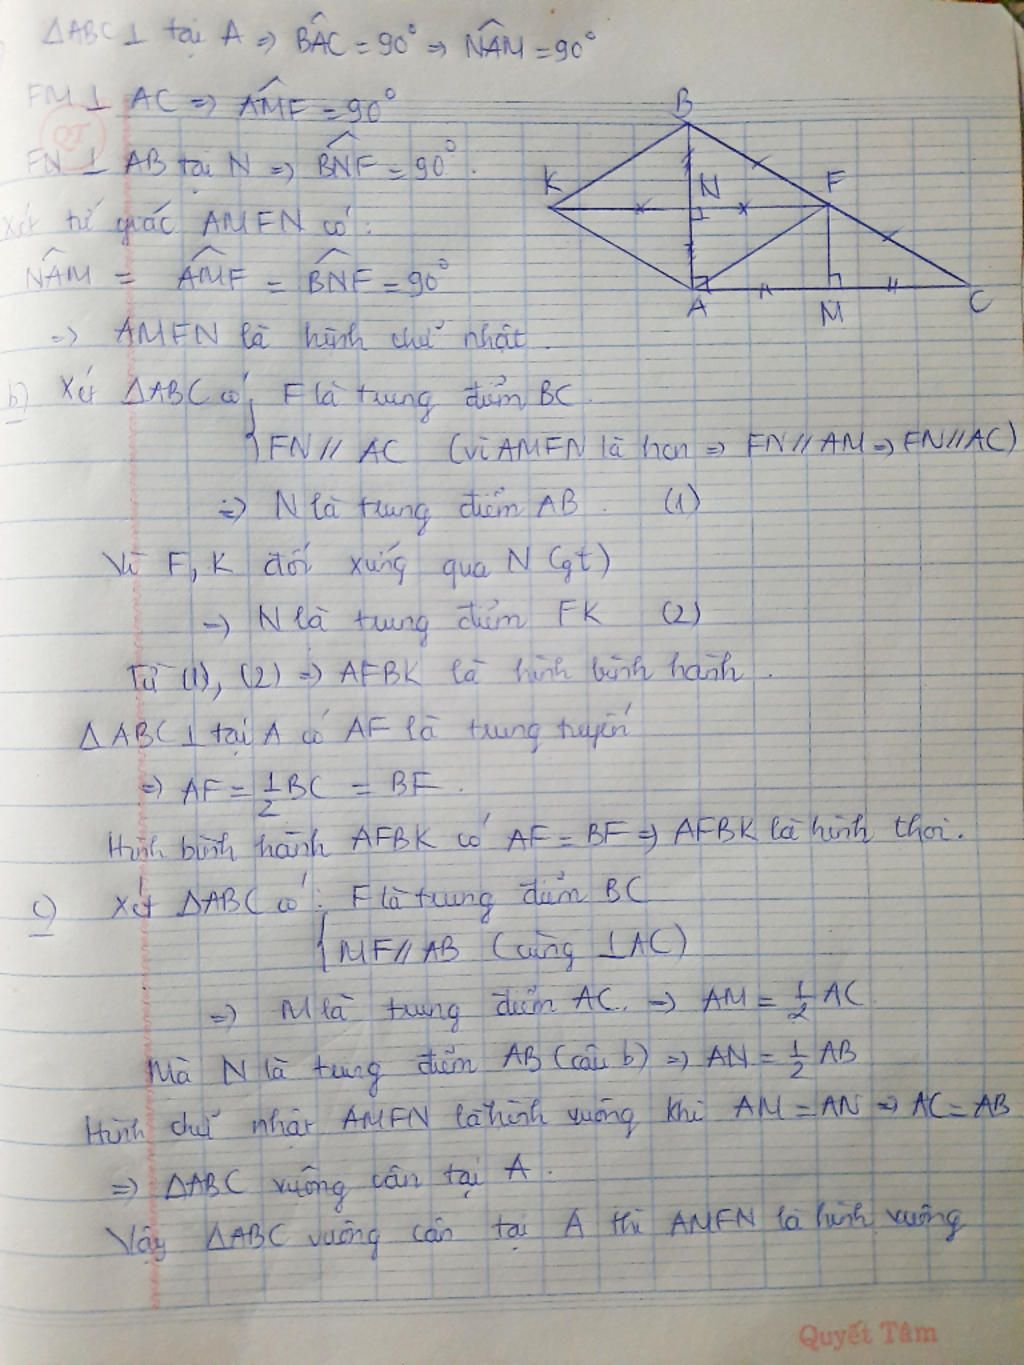 ΔABC ⊥ tại A ⇒ BÂC = 90° ⇒ NÂM = 90°
FM ⊥ AC ⇒ AM̂F = 90°
FN ⊥ AB tại N ⇒ BN̂F = 90°.
Xét tứ giác AMFN có:
NÂM = AM̂F = BN̂F = 90°
⇒ AMFN là hình chữ nhật.
b) Xét ΔABC có { F là trung điểm BC.
FN // AC (vì AMFN là hcn ⇒ FN // AM ⇒ FN // AC)
⇒ N là trung điểm AB. (1)
Vì F, K đối xứng qua N (gt)
⇒ N là trung điểm FK (2)
Từ (1), (2) ⇒ AFBK là hình bình hành.
ΔABC ⊥ tại A có AF là trung tuyến
⇒ AF = 1/2 BC = BF.
Hình bình hành AFBK có AF = BF ⇒ AFBK là hình thoi.
c) Xét ΔABC có: { F là trung điểm BC
MF // AB (cùng ⊥ AC)
⇒ M là trung điểm AC. ⇒ AM = 1/2 AC
Mà N là trung điểm AB (câu b) ⇒ AN = 1/2 AB
Hình chữ nhật AMFN là hình vuông khi AM = AN ⇒ AC = AB
⇒ ΔABC vuông cân tại A.
Vậy ΔABC vuông cân tại A thì AMFN là hình vuông
B
K
N
F
A
M
C
QT
Quyết Tâm